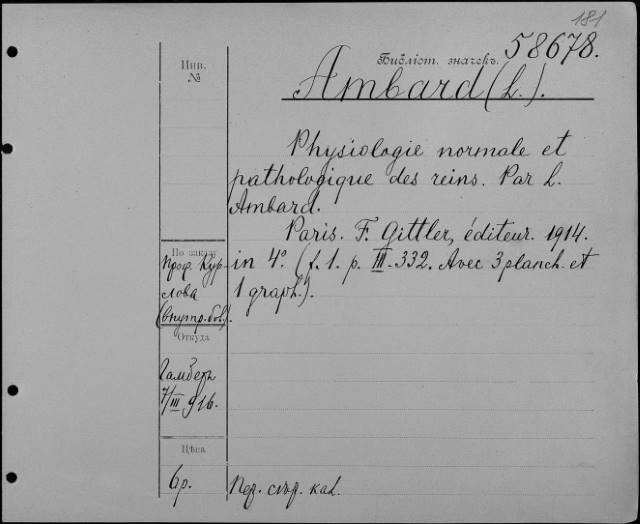 181
Библіот. значекъ. 58678.
Инв.
№
Ambard (L.).
Physiologie normale et
pathologique des reins. Par L.
Ambard.
Paris. F. Gittler, éditeur. 1914.
in 4º. (f. 1. p. III-332. Avec 3 planch. et
1 graph.).
По заказу
Проф. Кур-
лова
(внутр. бол.).
Откуда
Гамбетъ
7/III 916.
Цѣна
6р.